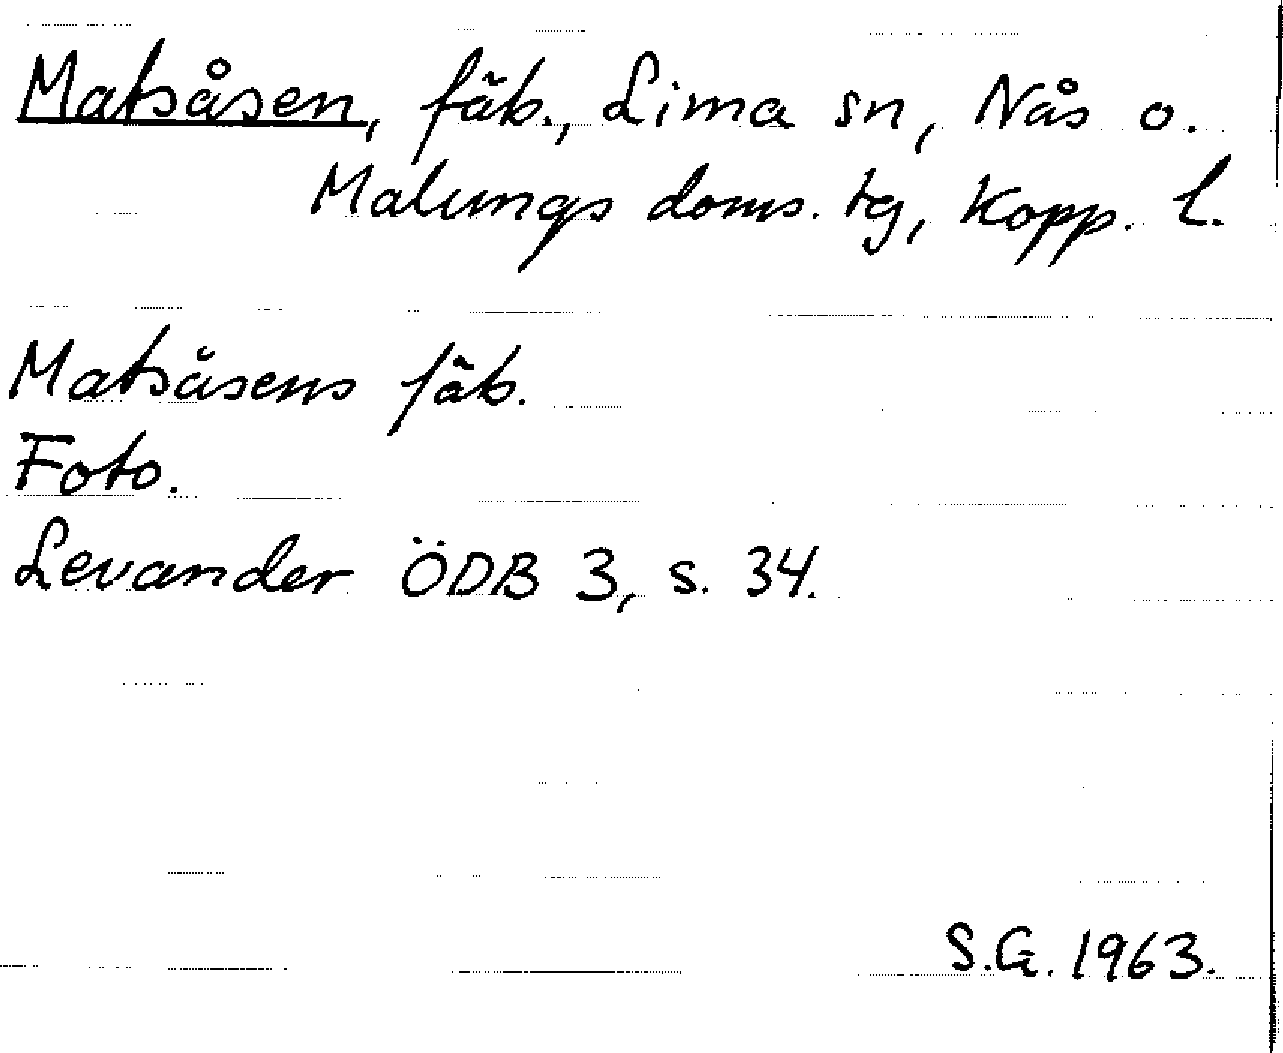 Matsåsen, fäb., Lima sn, Nås o.
Malungs doms. tg, Kopp. l.
Matsåsens fäb.
Foto.
Levander ÖDB 3, s. 34.
S.G. 1963.